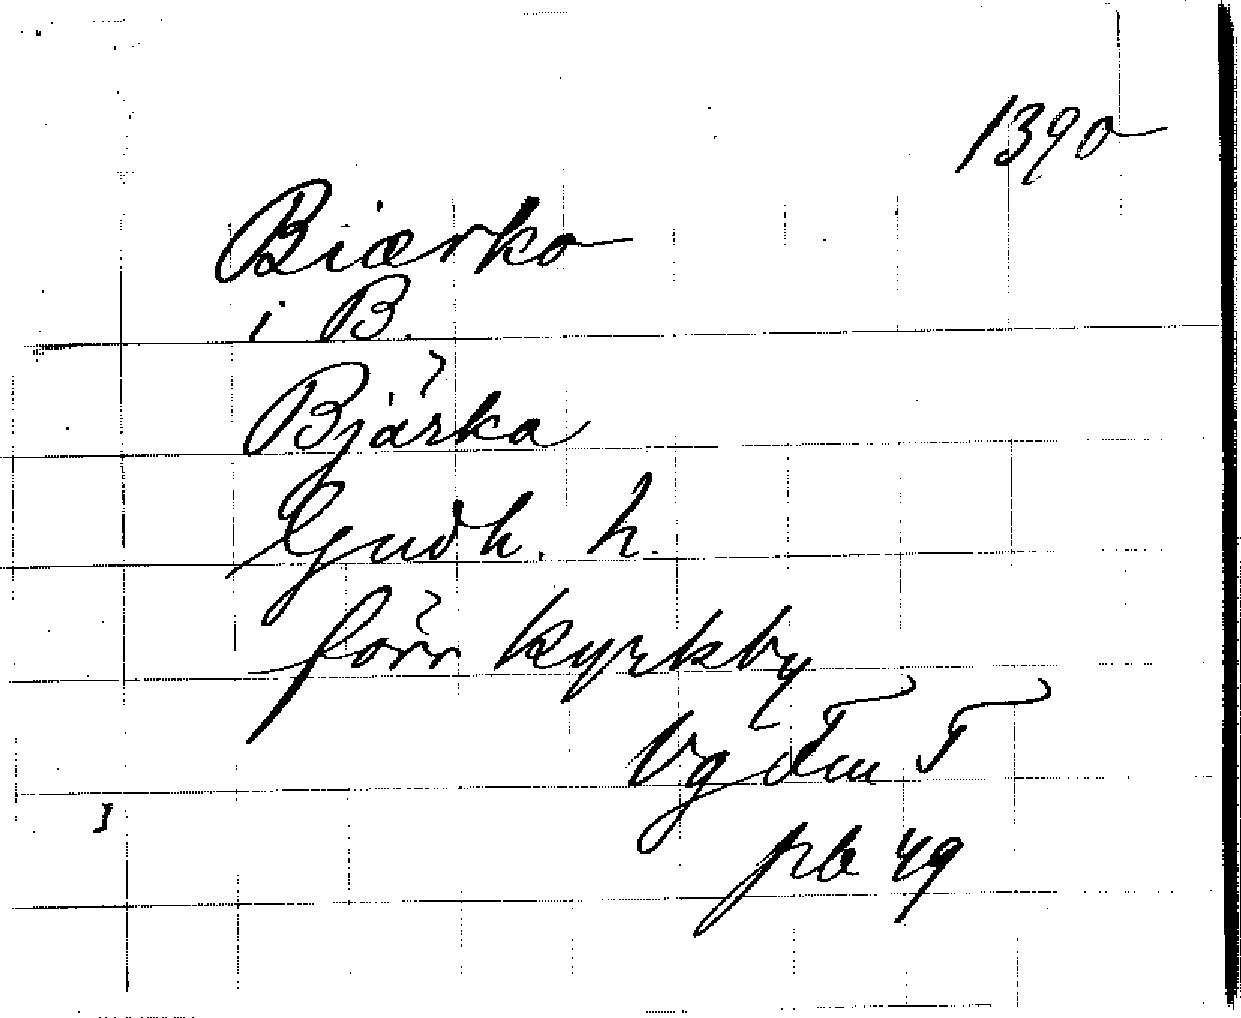 1390
Biærko
i B.
Bjärka
Gudh. h.
förr kyrkby
Vg
pb 49